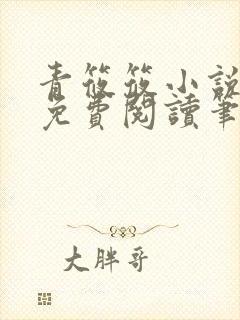 青筱筱小說
免費閱讀筆
大胖哥